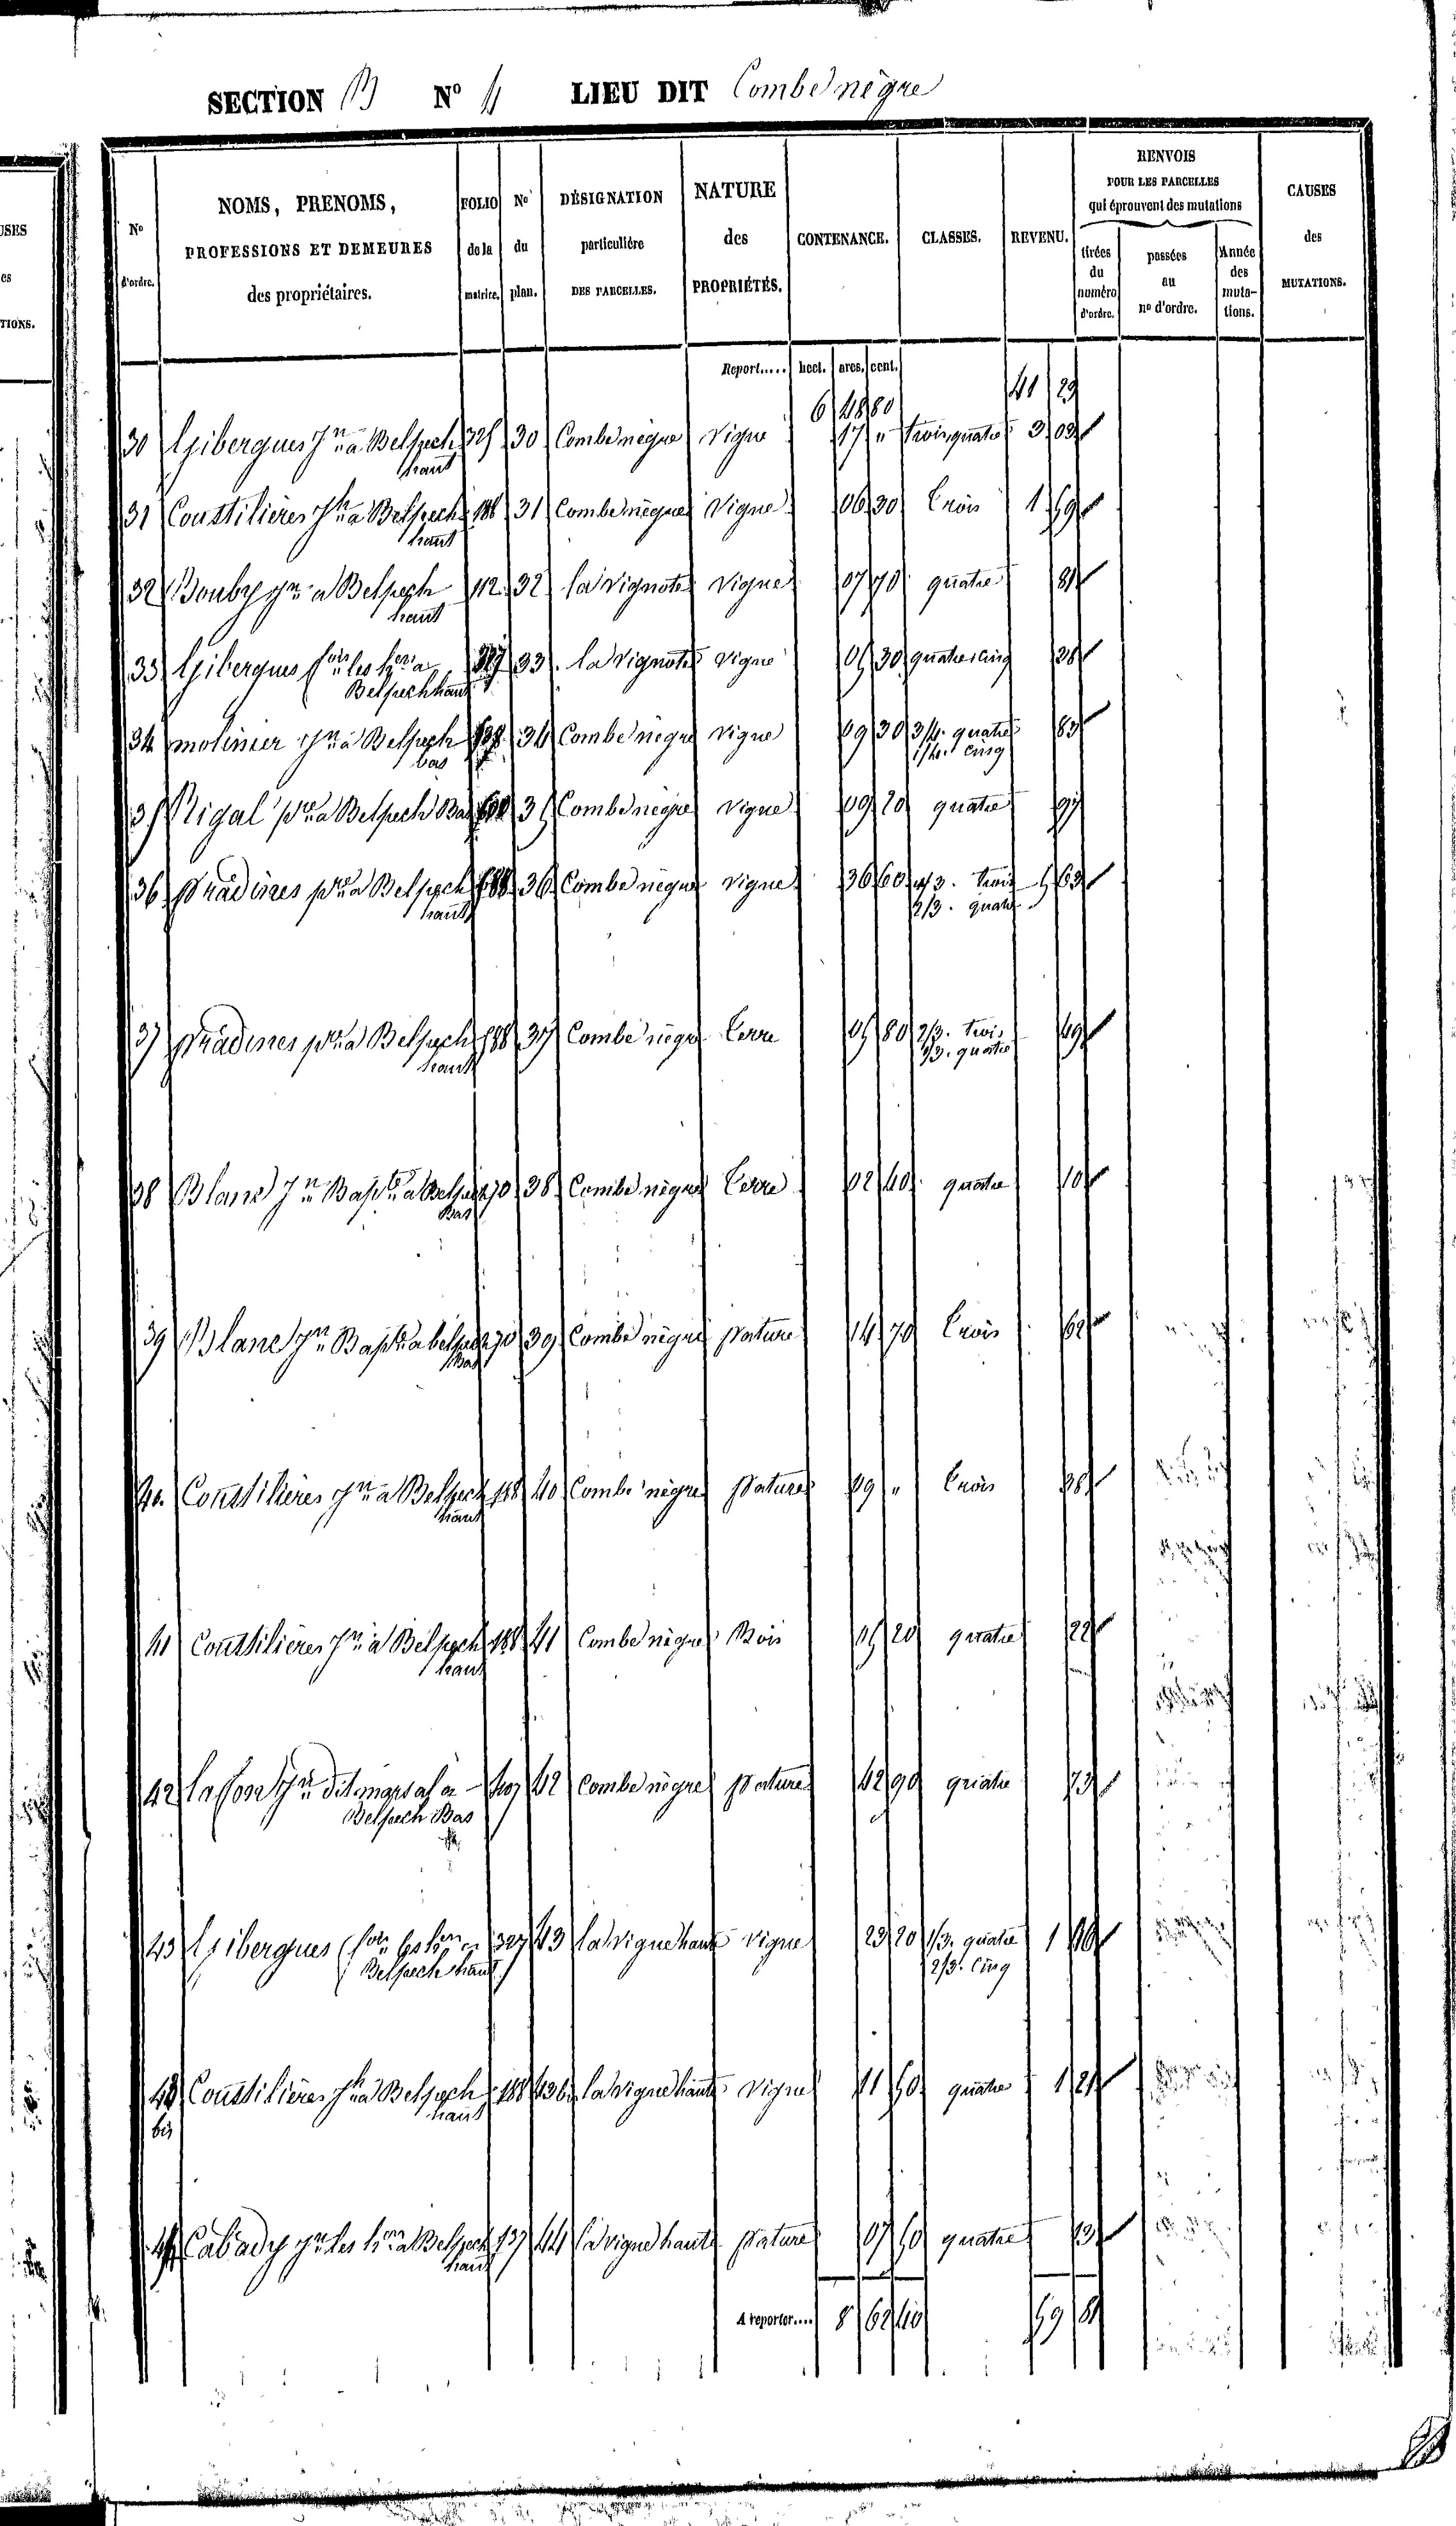 SECTION B N° 4 LIEU DIT Combe nègre
USES
es
TIONS.
N° d'ordre.
NOMS, PRENOMS, PROFESSIONS ET DEMEURES des propriétaires.
FOLIO de la matrice.
N° du plan.
DÉSIGNATION particulière DES PARCELLES.
NATURE des PROPRIÉTÉS.
CONTENANCE.
CLASSES.
REVENU.
RENVOIS POUR LES PARCELLES qui éprouvent des mutations
tirées du numéro d'ordre.
passées au n° d'ordre.
Année des muta- tions.
CAUSES des MUTATIONS.
Report..... hect. ares. cent.
6 48 80 41 29
30 Gibergues Jn a Belpech 325 30 Combe nègre Vigne 17 " trois quatre 3 03
haut
31 Coustilières Jh a Belpech 188 31 Combe nègre Vigne 06 30 trois 1 69
haut
32 Bouby Jn a Belpech 112 32 la vignote vigne 07 70 quatre 81
haut
33 Gibergues les hers a 327 33 la vignote vigne 05 30 quatre cinq 38
Belpech haut
34 molinier Jn a Belpech 34 Combe nègre vigne 09 30 3/4. quatre 83
bas 1/4. cinq
35 Rigal pre a Belpech Bas 35 Combe nègre vigne 09 20 quatre 97
36 Pradines pre a Belpech 588 36 Combe nègre vigne 36 60 1/3. trois 5 63
haut 2/3. quatre
37 Pradines pre a Belpech 588 37 Combe nègre terre 05 80 2/3. trois 49
haut 1/3. quatre
38 Blanc Jn Bapte a Belpech 70 38 Combe nègre terre 02 40 quatre 10
Bas
39 Blanc Jn Bapte a belpech 70 39 Combe nègre pature 14 70 trois 62
Bas
40. Coustilières Jn a Belpech 188 40 Combe nègre pature 09 " trois 38
haut
41 Coustilières Jn a Belpech 188 41 Combe nègre Bois 05 20 quatre 22
haut
42 lafon Jn dit marsal a 42 Combe nègre pature 42 90 quatre 73
Belpech Bas
43 Gibergues les hers a 327 43 la vigne haute vigne 23 20 1/3. quatre 1 16
Belpech haut 2/3. cinq
43 Coustilières Jh a Belpech 188 43 bis la vigne haute vigne 11 50 quatre 1 21
bis haut
44 Cabady Jn les hers a Belpech 137 44 la vigne haute pature 07 50 quatre 13
haut
A reporter.... 8 62 40 59 81